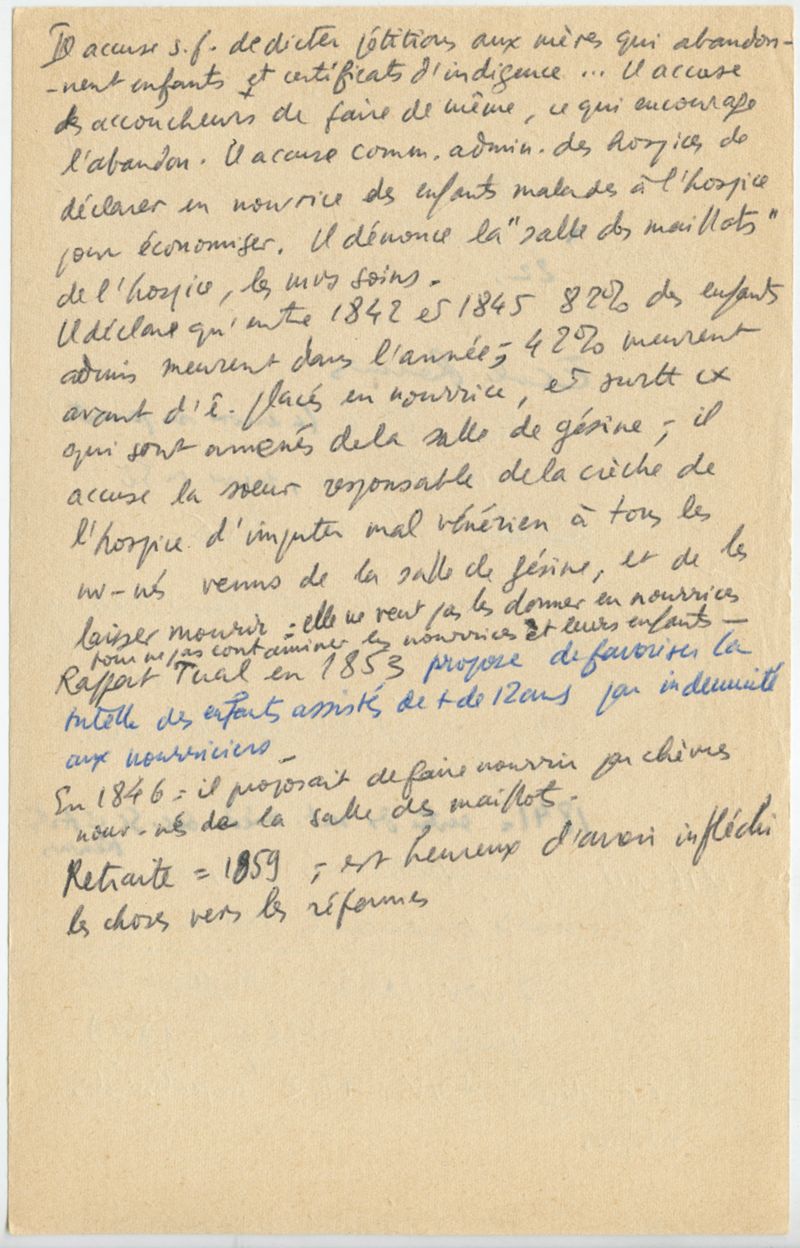 Il accuse s.f. de dicter pétitions aux mères qui abandon-
-nent enfants et certificats d'indigence ... Il accuse
des accoucheurs de faire de même, ce qui encourage
l'abandon. Il accuse comm. admin. des hospices de
déclarer en nourrice des enfants malades à l'hospice
pour économiser. Il dénonce la "salle des maillots"
de l'hospice, les mvs soins.
Il déclare qu'entre 1842 et 1845 82% des enfants
admis meurent dans l'année ; 42% meurent
avant d'ê. placés en nourrice, et surtt cx
qui sont amenés de la salle de gésine ; il
accuse la sœur responsable de la crèche de
l'hospice d'imputer mal vénérien à tous les
nv-nés venus de la salle de gésine, et de les
laisser mourir : elle ne veut pas les donner en nourrices
pour ne pas contaminer les nourrices et leurs enfants -
Rapport Tual en 1853 propose de favoriser la
tutelle des enfants assistés de + de 12 ans par indemnité
aux nourriciers -
En 1846 = il proposait de faire nourrir par chèvres
nouv-nés de la salle des maillots -
Retraite = 1859 ; est heureux d'avoir infléchi
les choses vers les réformes